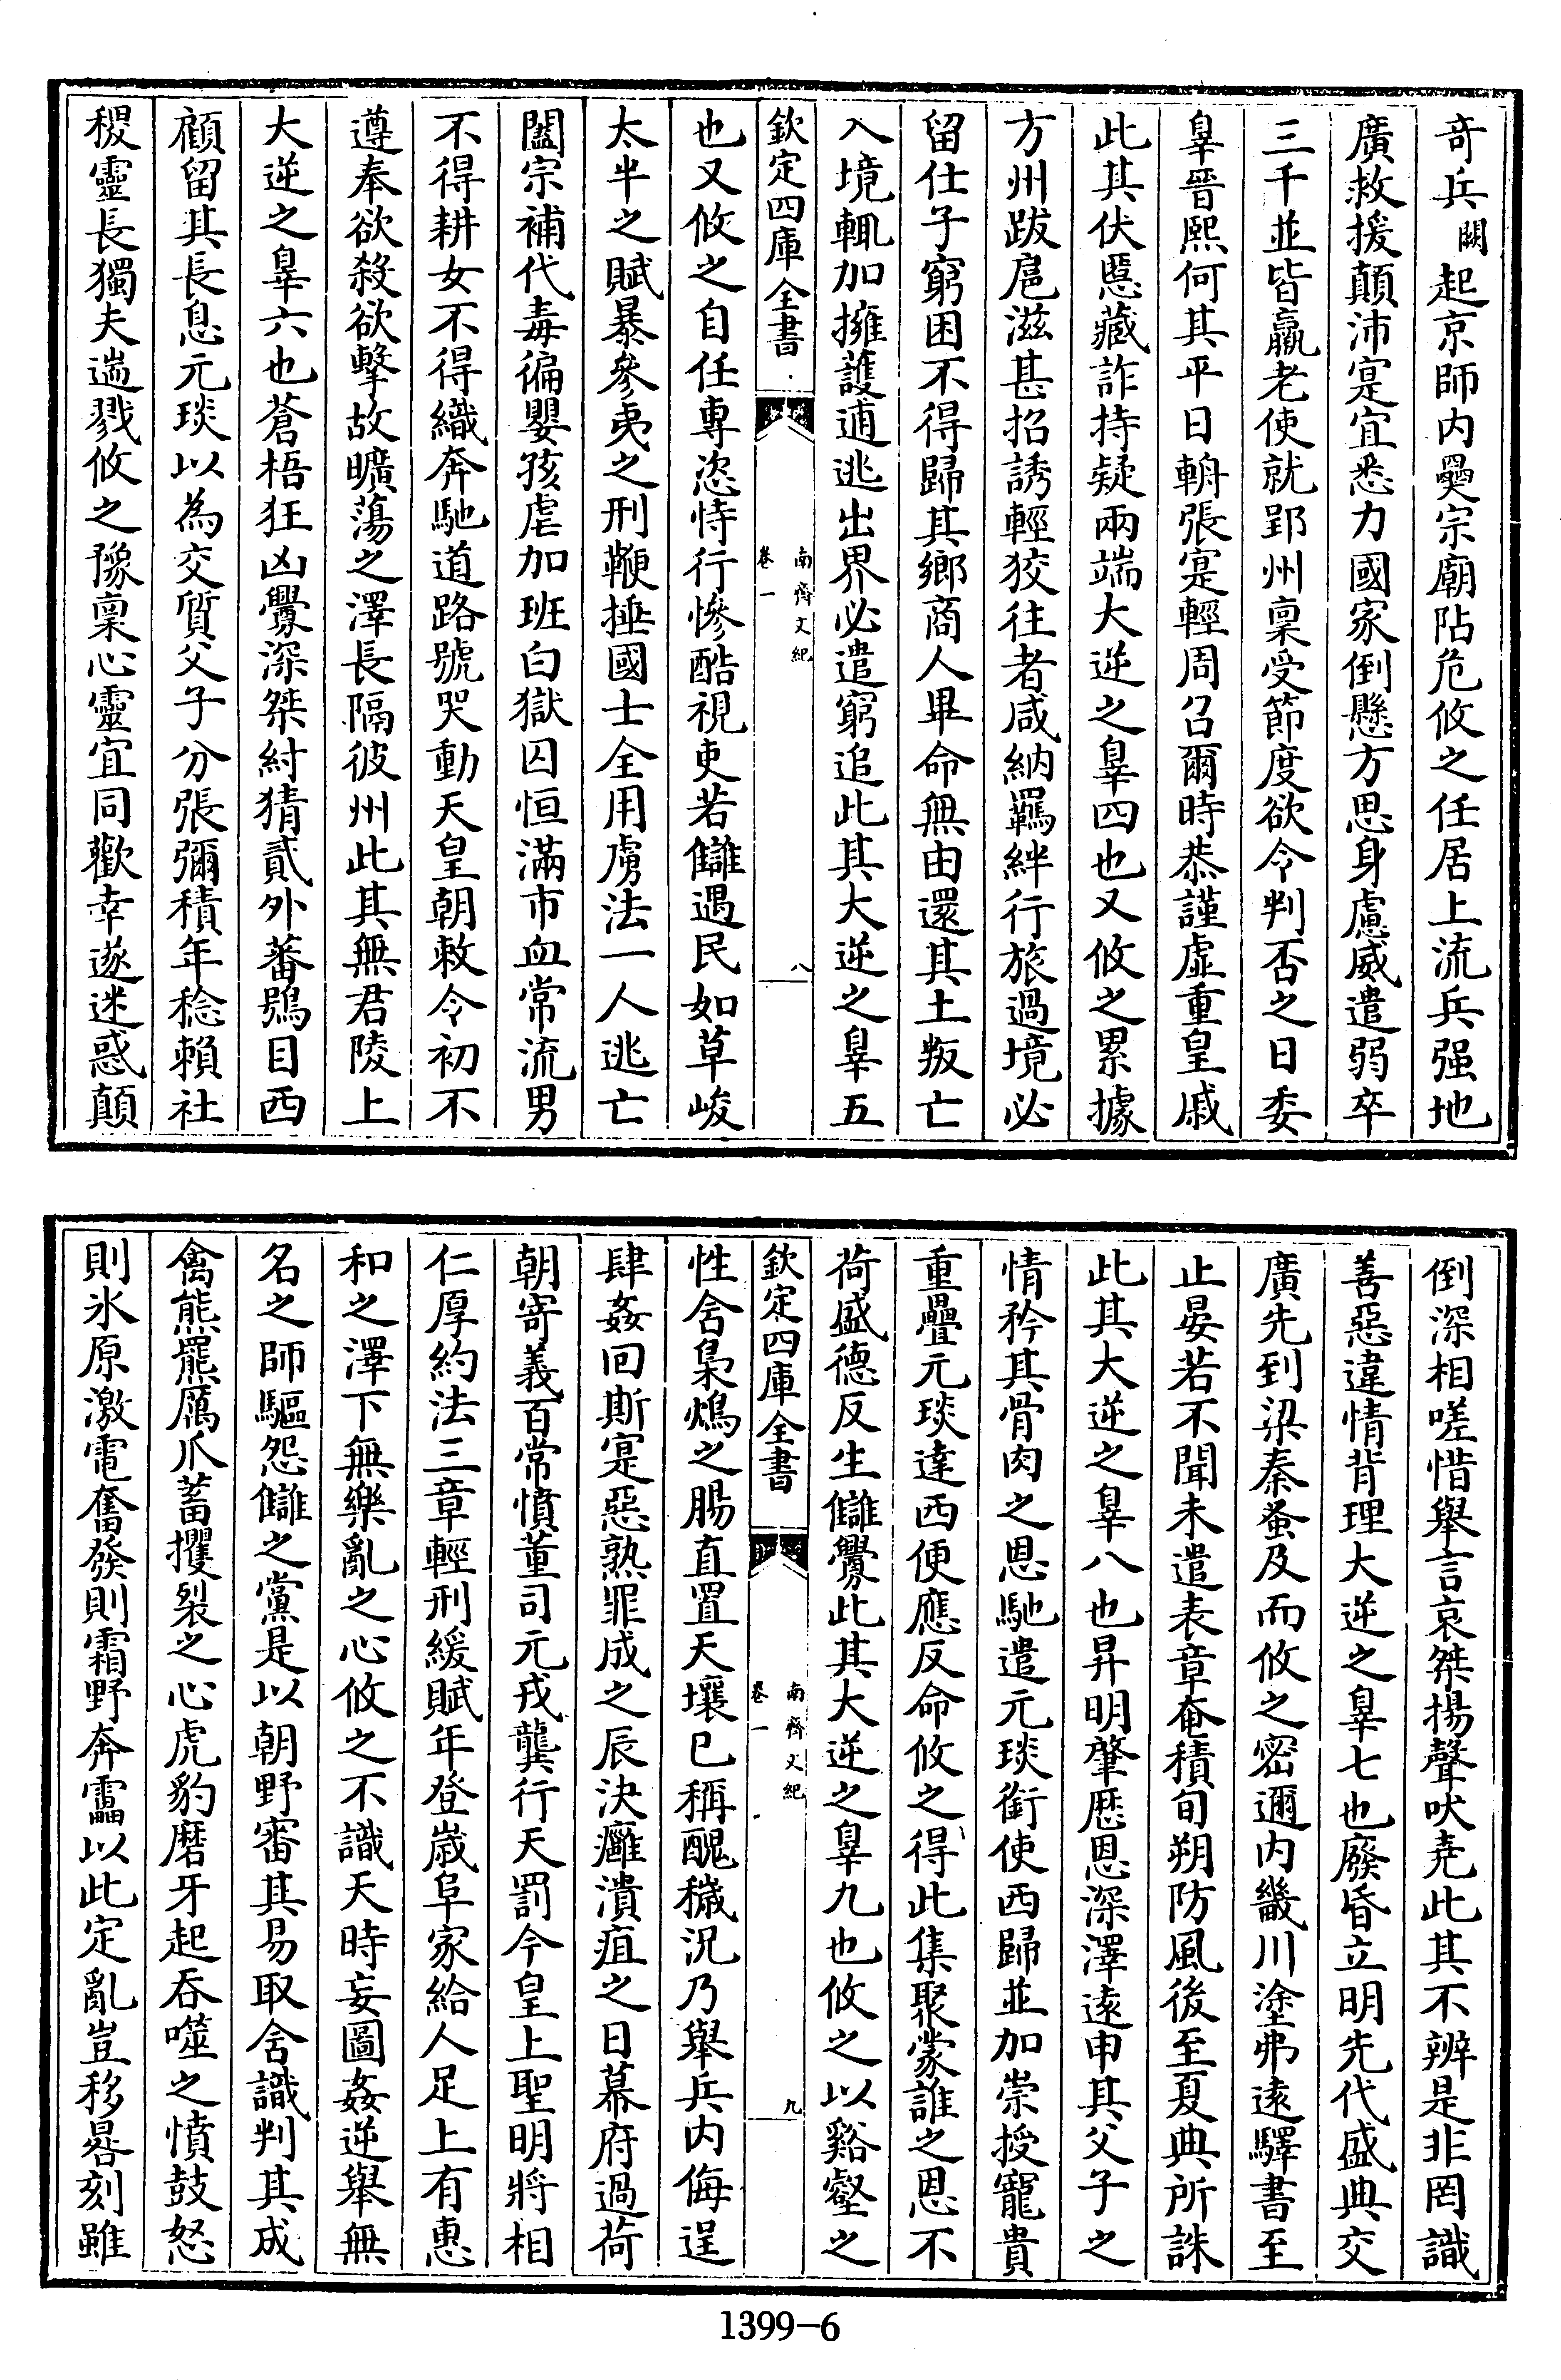 奇兵闕起京師内釁宗廟阽危攸之任居上流兵强地
廣救援顛沛寔宜悉力國家倒懸方思身慮威遣弱卒
三千並皆羸老使就郢州稟受節度欲令判否之日委
辠晉熙何其平日輈張寔輕周召爾時恭謹虚重皇戚
此其伏慝藏詐持疑兩端大逆之辠四也又攸之累據
方州跋扈滋甚招誘輕狡往者咸納羈絆行旅過境必
留仕子窮困不得歸其鄉商人畢命無由還其土叛亡
入境輒加擁護逋逃出界必遣窮追此其大逆之辠五
欽定四庫全書
南齊文紀
卷一
八
也又攸之自任專恣恃行慘酷視吏若讎遇民如草峻
太半之賦暴參夷之刑鞭捶國士全用虜法一人逃亡
闔宗補代毒徧嬰孩虐加班白獄囚恒滿市血常流男
不得耕女不得織奔馳道路號哭動天皇朝敕令初不
遵奉欲殺欲擊故曠蕩之澤長隔彼州此其無君陵上
大逆之辠六也蒼梧狂凶釁深桀紂猜貳外蕃鴞目西
顧留其長息元琰以為交質父子分張彌積年稔賴社
稷靈長獨夫遄戮攸之豫稟心靈宜同歡幸遂迷惑顛
倒深相嗟惜舉言哀桀揚聲吠堯此其不辨是非罔識
善惡違情背理大逆之辠七也廢昏立明先代盛典交
廣先到梁秦蚤及而攸之密邇内畿川塗弗逺驛書至
止晏若不聞未遣表章奄積旬朔防風後至夏典所誅
此其大逆之辠八也昇明肇厯恩深澤逺申其父子之
情矜其骨肉之恩馳遣元琰銜使西歸並加崇授寵貴
重疊元琰達西便應反命攸之得此集聚蒙誰之恩不
荷盛德反生讎釁此其大逆之辠九也攸之以谿壑之
欽定四庫全書
南齊文紀
卷一
九
性含梟鴆之腸直置天壤已稱醜穢況乃舉兵内侮逞
肆姦回斯寔惡熟罪成之辰決癰潰疽之日幕府過荷
朝寄義百常憤董司元戎龔行天罰今皇上聖明將相
仁厚約法三章輕刑緩賦年登歳阜家給人足上有惠
和之澤下無樂亂之心攸之不識天時妄圖姦逆舉無
名之師驅怨讎之黨是以朝野審其易取含識判其成
禽熊羆厲爪蓄攫裂之心虎豹磨牙起吞噬之憤鼓怒
則氷原激電奮發則霜野奔靁以此定亂豈移晷刻雖
1399-6